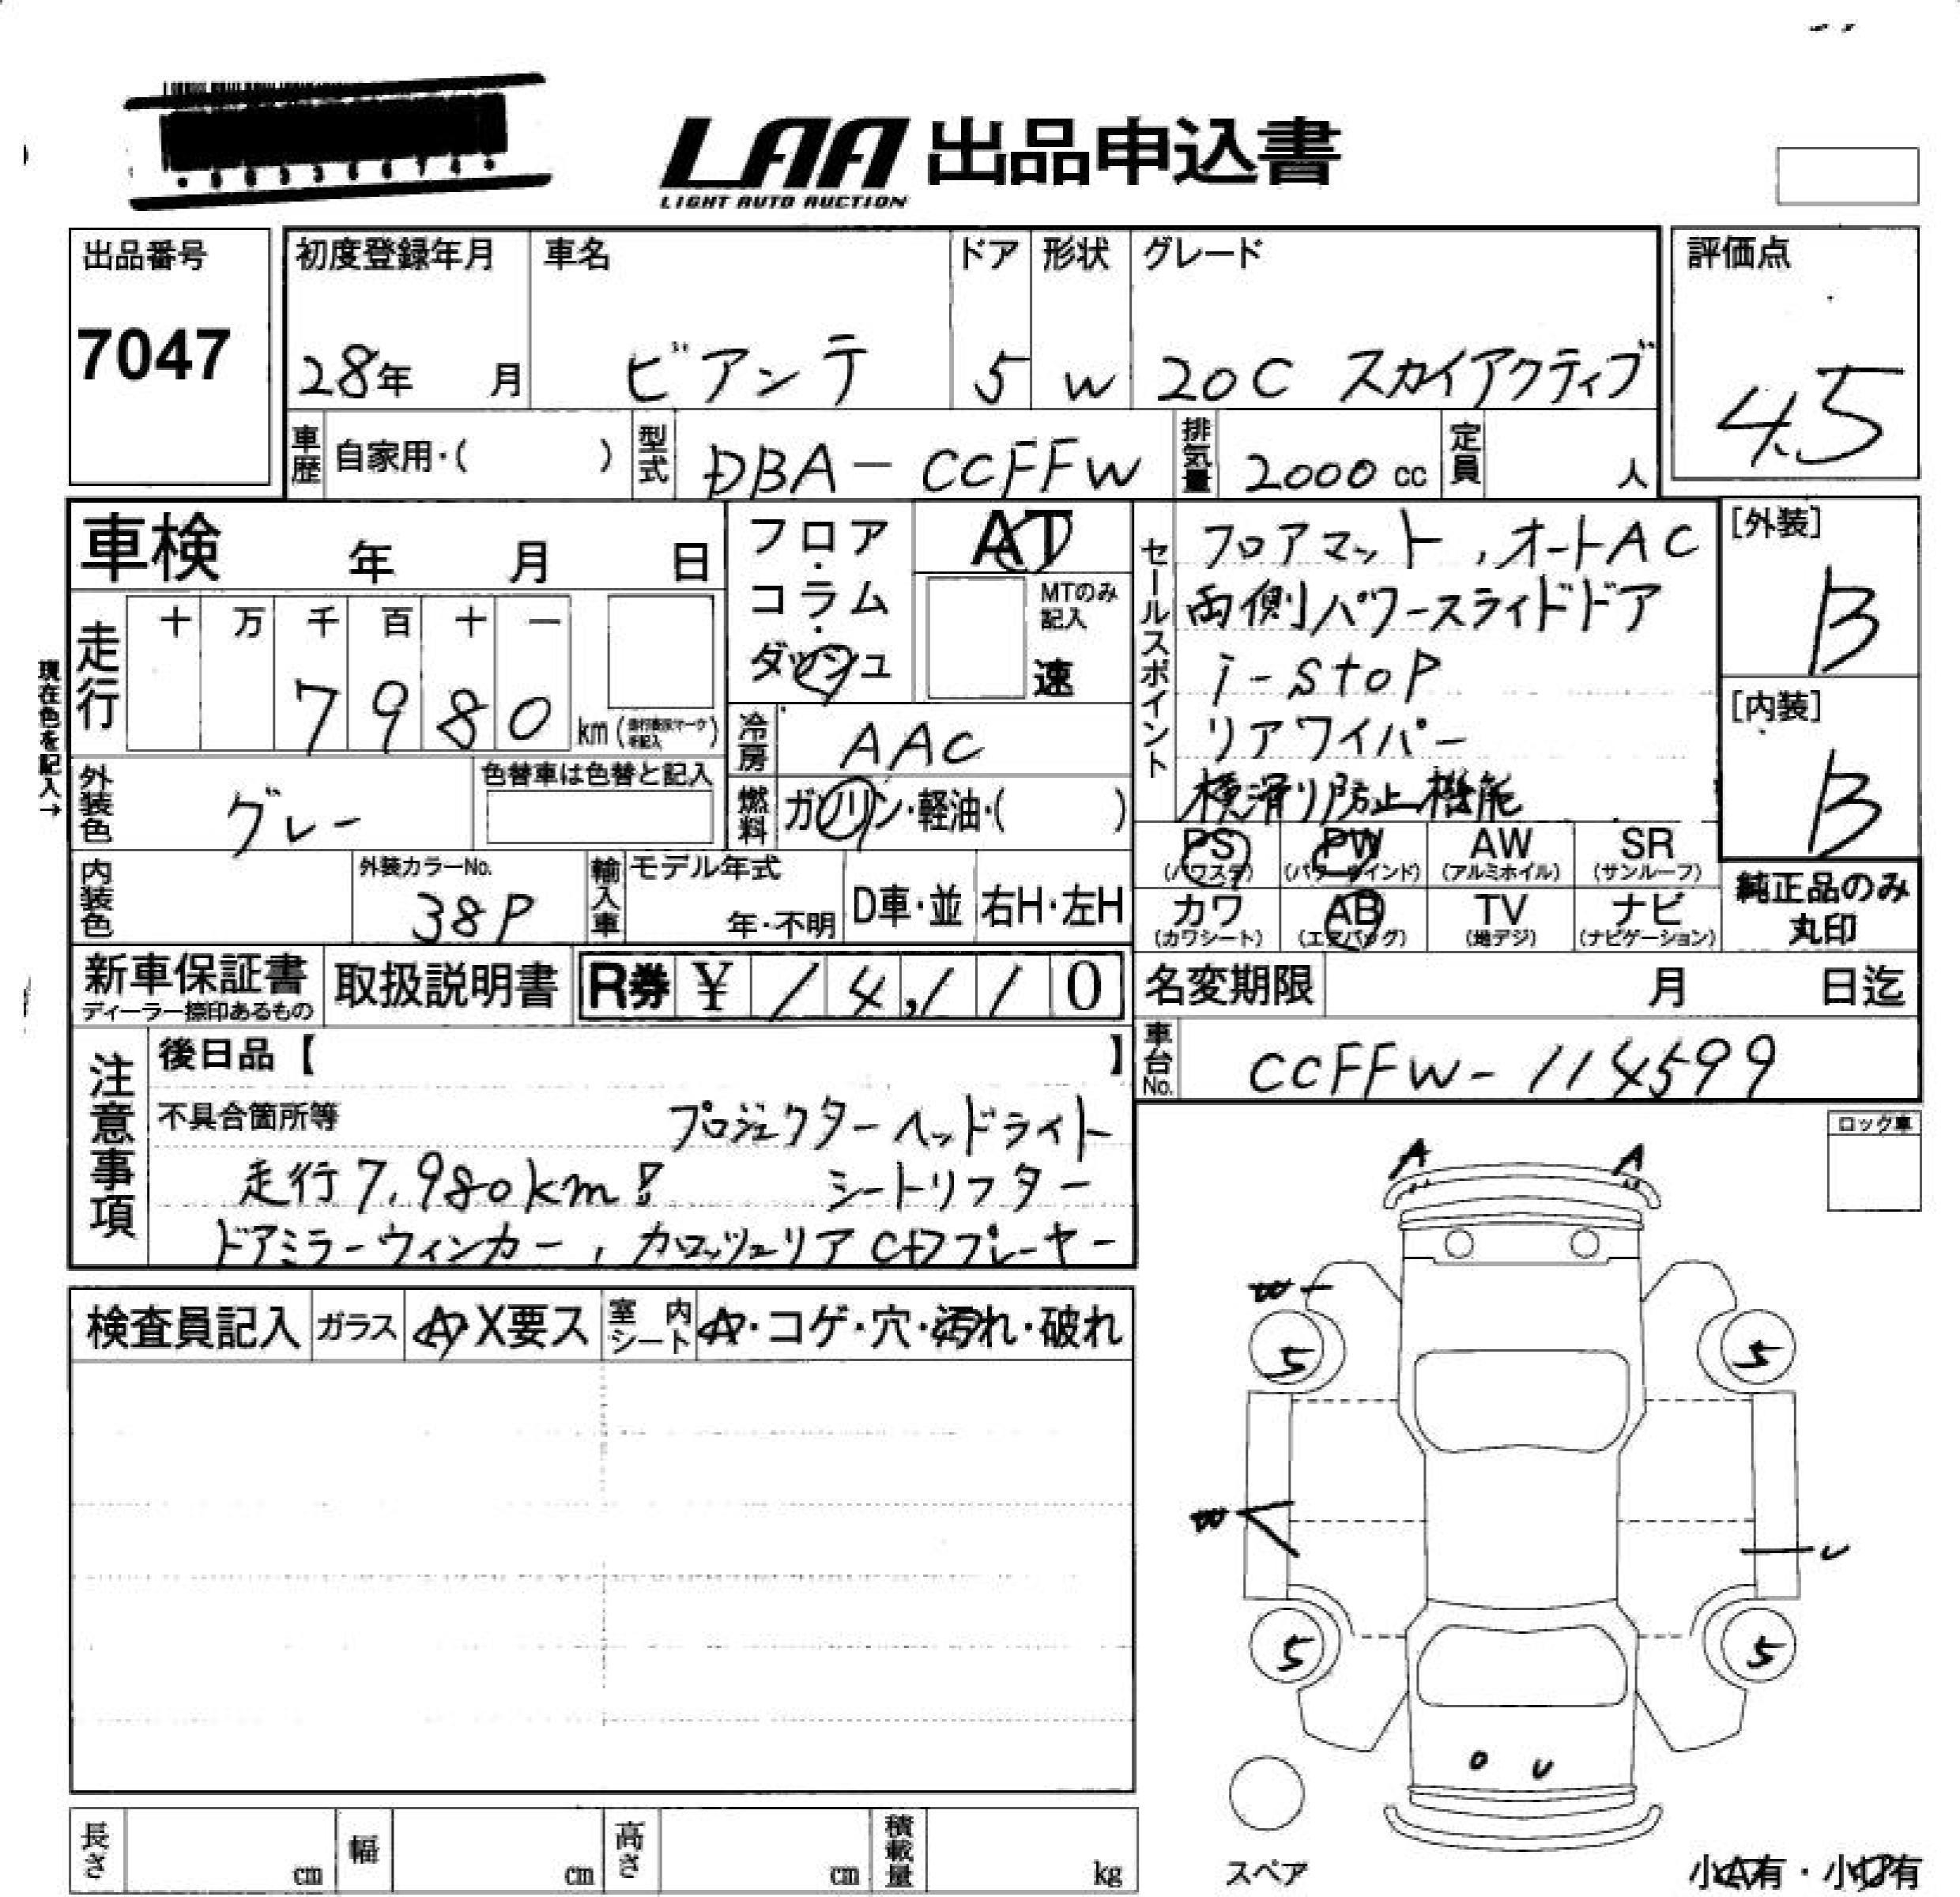 LAA 出品申込書
LIGHT AUTO AUCTION
出品番号
7047
初度登録年月
28年 月
車名
ビアンテ
ドア
5
形状
W
グレード
20C スカイアクティブ
評価点
4.5
車歴 自家用・( )
型式 DBA-CCFFW
排気量 2000 cc
定員 人
車検 年 月 日
フロア・コラム・ダッシュ
AT
MTのみ記入
速
走行
十 万 千 百 十 一
7 9 8 0 km
現在色を記入→
冷房 AAC
燃料 ガソリン・軽油・( )
外装色 グレー
色替車は色替と記入
内装色
外装カラーNo.
38P
輸入車
モデル年式
年・不明
D車・並
右H・左H
セールスポイント
フロアマット,オートAC
両側パワースライドドア
i-stop
リアワイパー
横滑り防止機能
[外装]
B
[内装]
B
PS (パワステ)
PW (パワーウインド)
AW (アルミホイル)
SR (サンルーフ)
カワ (カワシート)
AB (エアバッグ)
TV (地デジ)
ナビ (ナビゲーション)
純正品のみ
丸印
新車保証書
ディーラー捺印あるもの
取扱説明書
R券 ¥ 14,110
名変期限 月 日迄
車台No. CCFFW-114599
注意事項
後日品【 】
不具合箇所等 プロジェクターヘッドライト
走行7,980km! シートリフター
ドアミラーウィンカー, カロッツェリアCDプレーヤー
ロック車
検査員記入
ガラス A・X要ス
室内シート A・コゲ・穴・汚れ・破れ
A A
W
5 5
W
U
5 5
U
スペア
小A有・小U有
長さ cm
幅 cm
高さ cm
積載量 kg